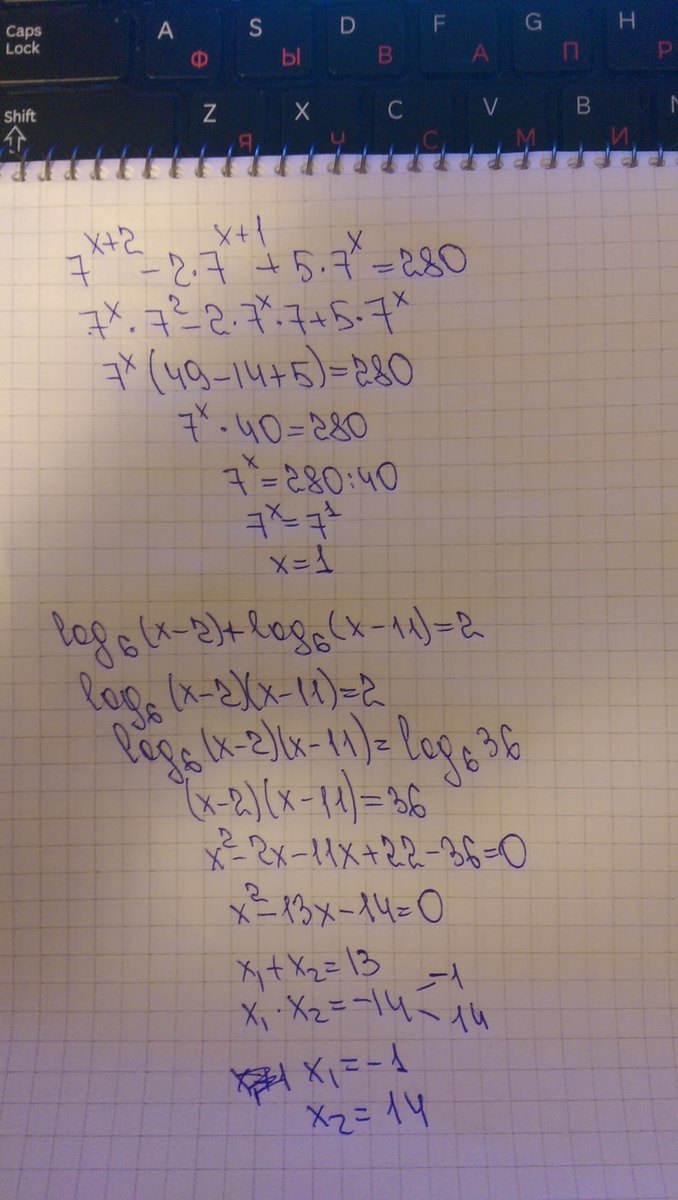 Caps Lock A Ф S Ы D В F А G П H Р
Shift Z Я X Ч C С V М B И
7^(x+2) - 2·7^(x+1) + 5·7^x = 280
7^x · 7^2 - 2·7^x·7 + 5·7^x
7^x (49-14+5) = 280
7^x · 40 = 280
7^x = 280:40
7^x = 7^1
x = 1
log₆(x-2) + log₆(x-11) = 2
log₆(x-2)(x-11) = 2
log₆(x-2)(x-11) = log₆36
(x-2)(x-11) = 36
x² - 2x - 11x + 22 - 36 = 0
x² - 13x - 14 = 0
x₁ + x₂ = 13
x₁ · x₂ = -14 -1 14
x₁ = -1
x₂ = 14